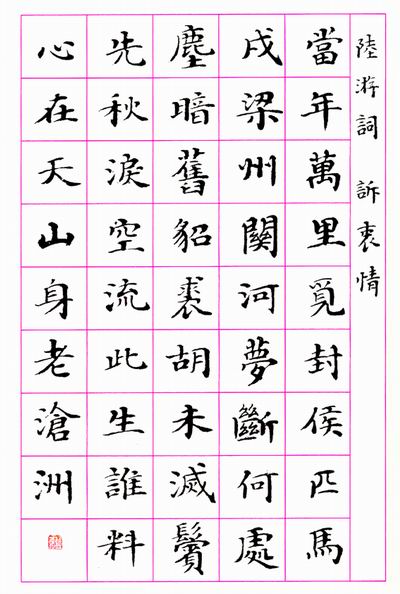 陸游詞 訴衷情
當年萬里覓封侯匹馬
戍梁州關河夢斷何處
塵暗舊貂裘胡未滅鬢
先秋淚空流此生誰料
心在天山身老滄洲